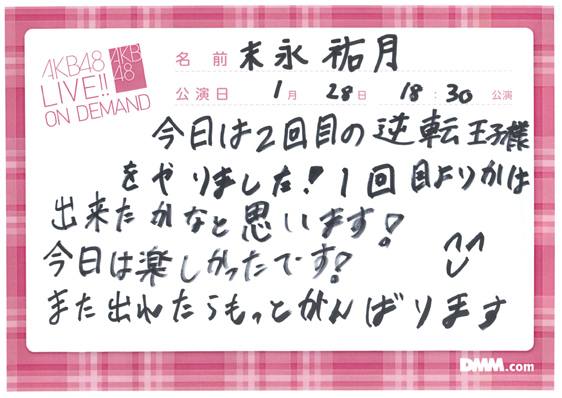 AKB48
LIVE!!
ON DEMAND
AKB
48
名前 末永祐月
公演日 1月 28日 18:30 公演
今日は2回目の逆転王子様
をやりました!1回目よりかは
出来たかなと思います!
今日は楽しかったです!
また出れたらもっとがんばります
DMM.com